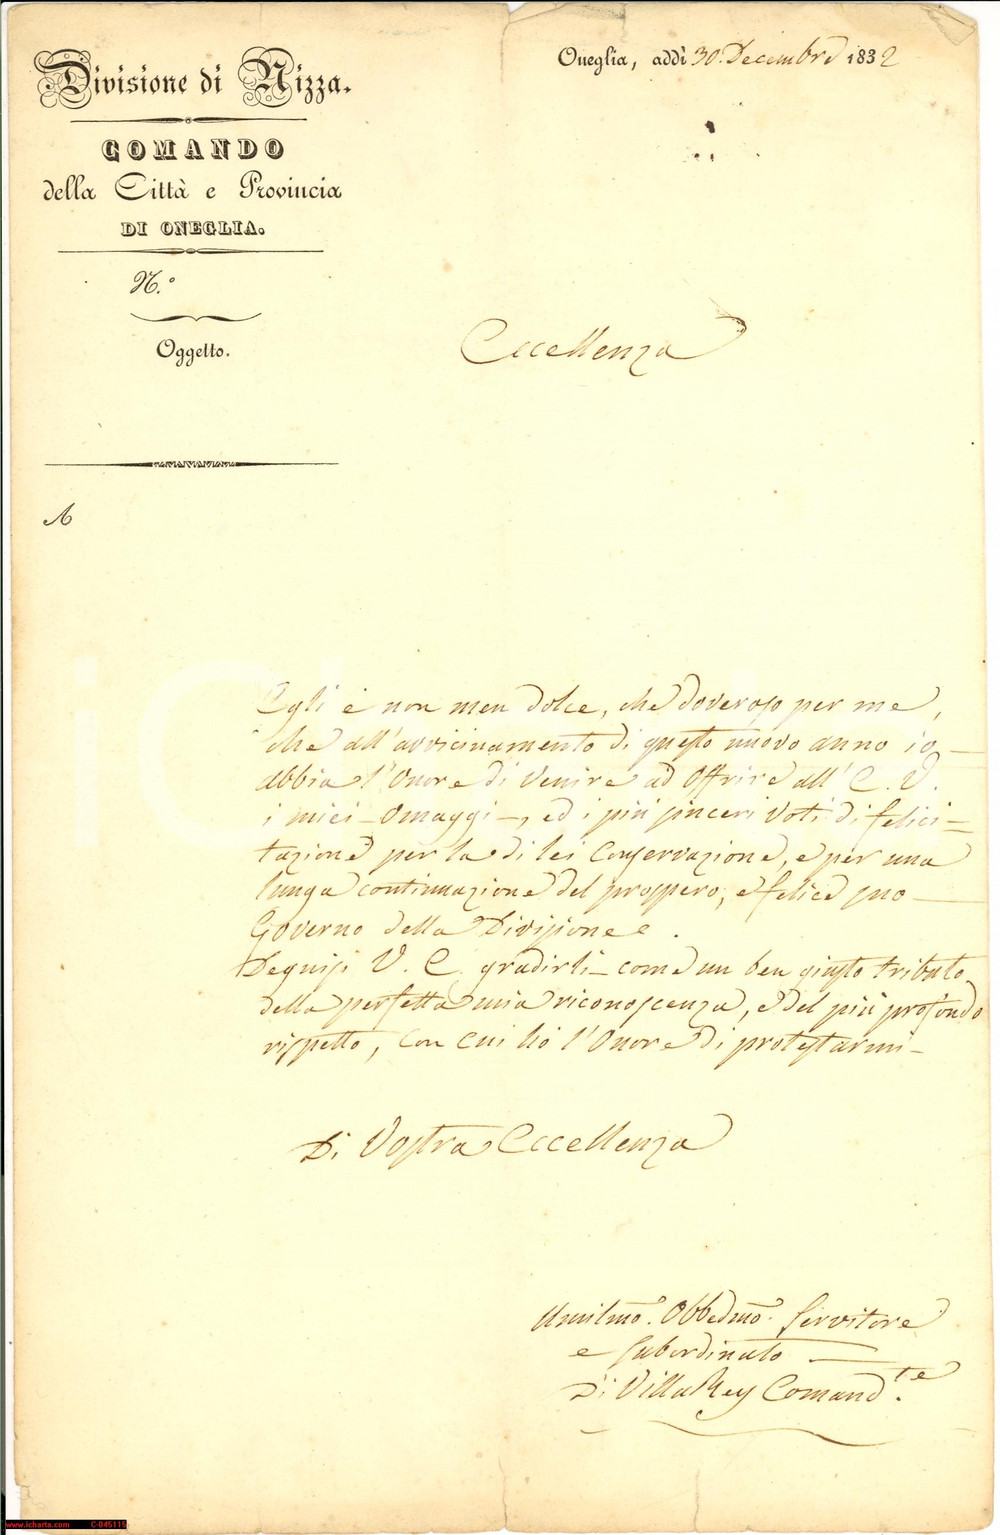 Divisione di Nizza.
COMANDO
della Città e Provincia
DI ONEGLIA.
N.°
Oggetto.
A
Oneglia, addì 30. Decembre 1832
Eccellenza
Egli è non men dolce, che doveroso per me,
che all'avvicinamento di questo nuovo anno io
abbia l'Onore di Venire ad Offrire all'E. V.
i miei Omaggi, ed i più sinceri Voti di felici=
tazione per la di lei Conservazione, e per una
lunga continuazione del prospero, e felice suo
Governo della Divisione.
Degnisi V. E. gradirli come un ben giusto tributo
della perfetta mia riconoscenza, e del più profondo
rispetto, Con Cui hò l'Onore di protestarmi
Di Vostra Eccellenza
Umilmo. Obbedmo. Servitore
e Subordinato
Di VillaRey Comandte.
www.icharta.com C-045115